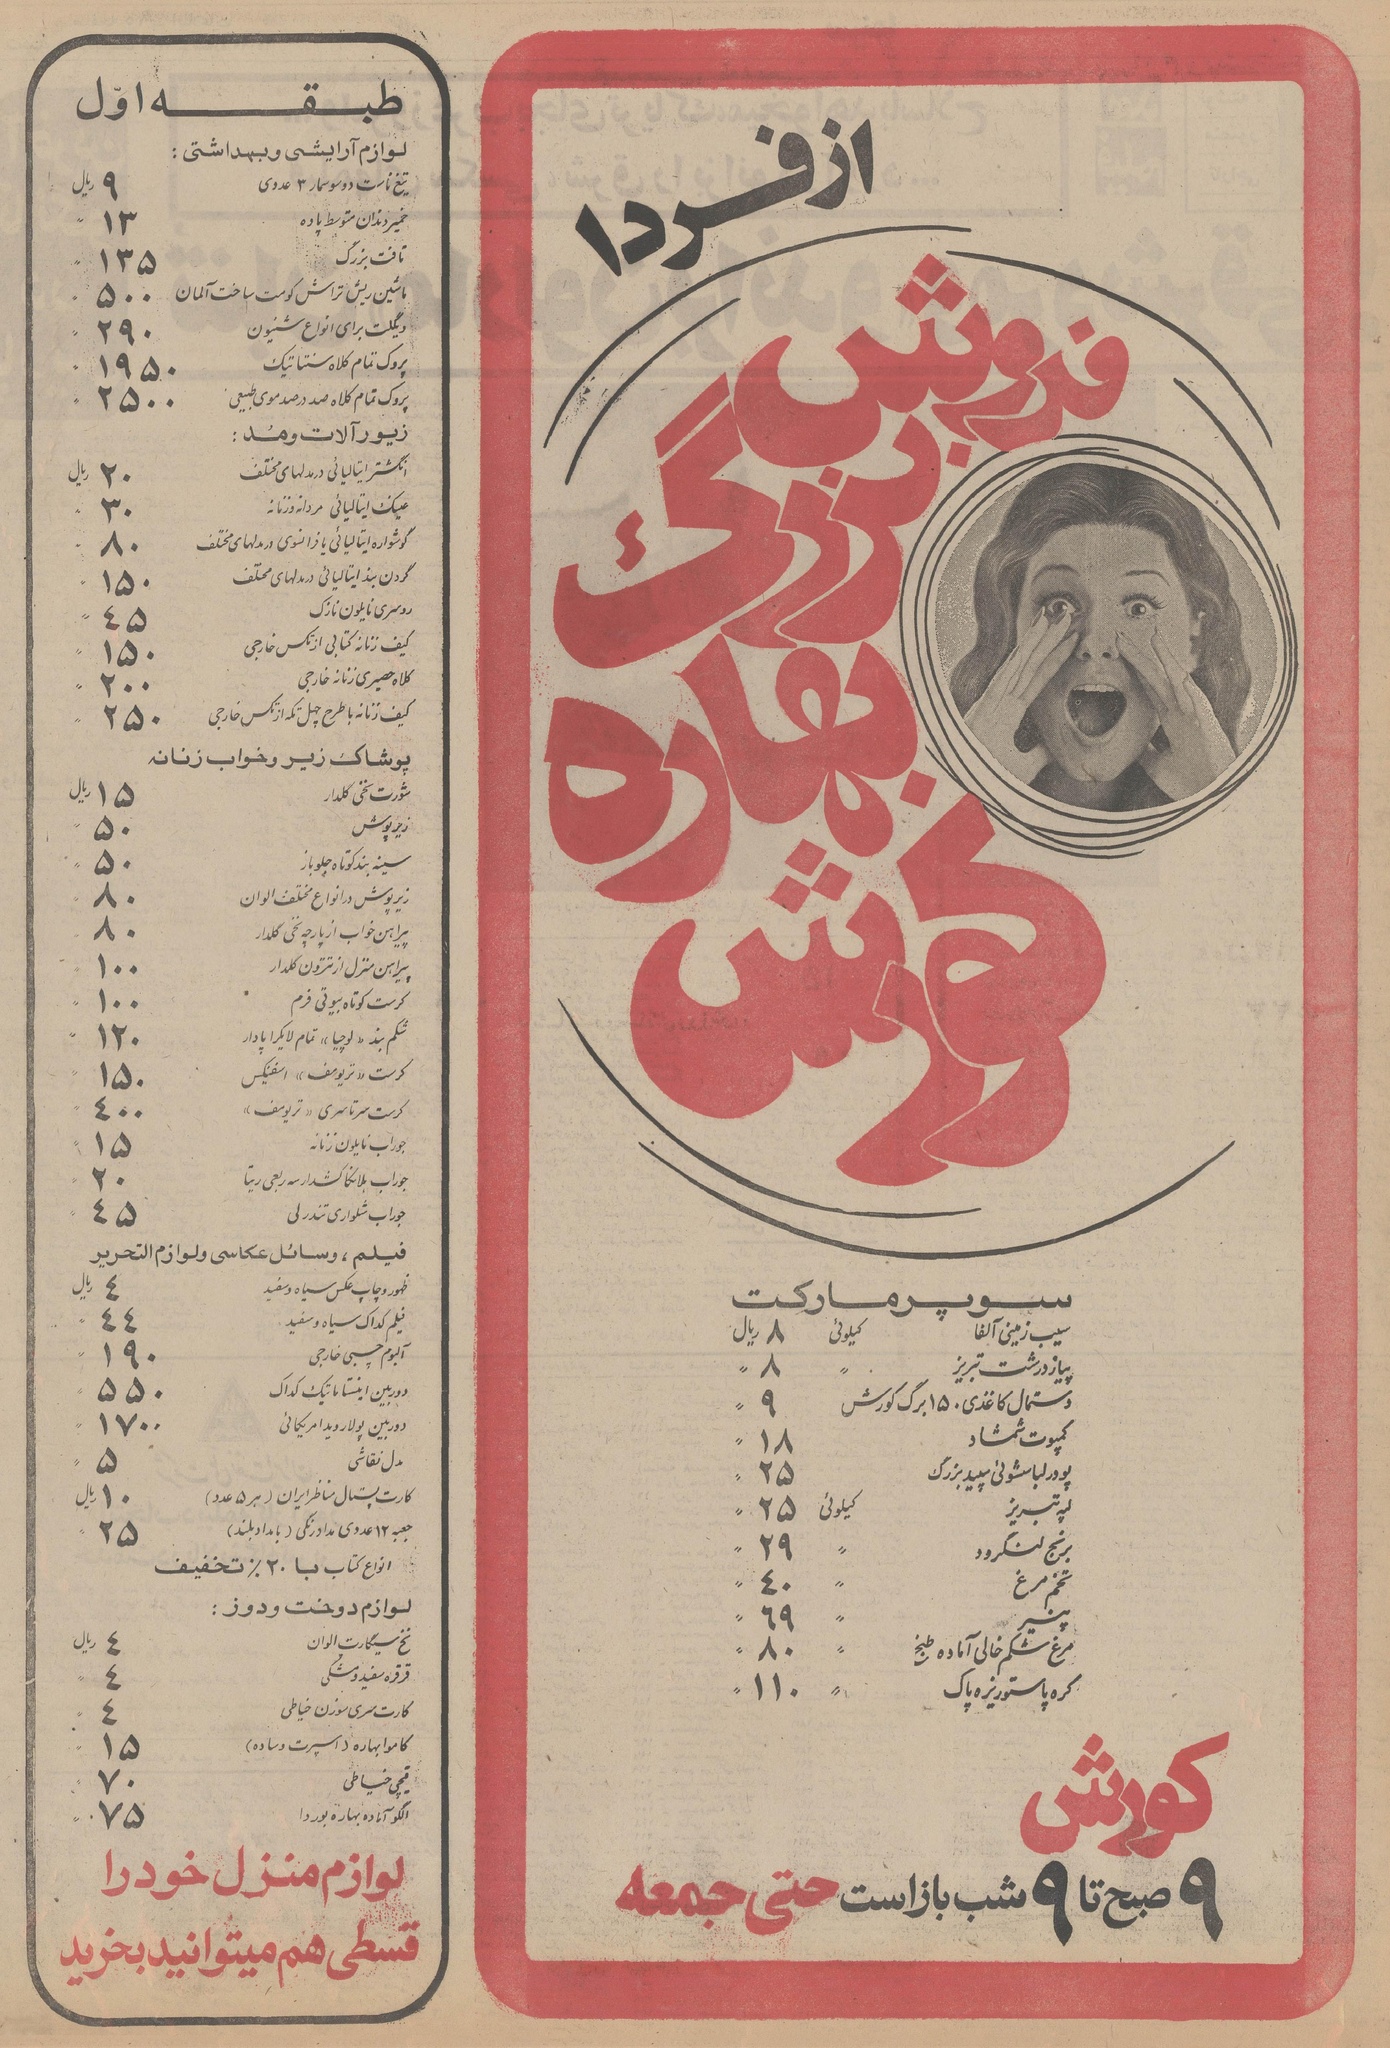 از فردا
فروش
بزرگ
بهاره
کورش
سوپر مارکت
سیب زمینی آلفا کیلوئی ۸ ریال
پیاز درشت تبریز " ۸ "
دستمال کاغذی ۱۵۰ برگ کورش ۹ "
کمپوت شمشاد ۱۸ "
پودر لباسشوئی سپید بزرگ ۲۵ "
لپه تبریز کیلوئی ۲۵ "
برنج لنگرود " ۲۹ "
تخم مرغ " ۴۰ "
پنیر " ۶۹ "
مرغ شکم خالی آماده طبخ " ۸۰ "
کره پاستوریزه پاک " ۱۱۰ "
کورش
۹ صبح تا ۹ شب باز است حتی جمعه
طبقه اوّل
لوازم آرایشی و بهداشتی :
تیغ ناست دوسوسمار ۳ عددی ۹ ریال
خمیر دندان متوسط پاده ۱۳ "
تافت بزرگ ۱۳۵ "
ماشین ریش تراش کومت ساخت آلمان ۵۰۰ "
دیگلت برای انواع شنیون ۲۹۰ "
پروک تمام کلاه سنتاتیک ۱۹۵۰ "
پروک تمام کلاه صد در صد موی طبیعی ۲۵۰۰ "
زیورآلات و مُد :
انگشتر ایتالیائی در مدلهای مختلف ۲۰ ریال
عینک ایتالیائی مردانه و زنانه ۳۰ "
گوشواره ایتالیائی یا فرانسوی در مدلهای مختلف ۸۰ "
گردن بند ایتالیائی در مدلهای مختلف ۱۵۰ "
روسری نایلون نازک ۴۵ "
کیف زنانه کتابی از تکس خارجی ۱۵۰ "
کلاه حصیری زنانه خارجی ۲۰۰ "
کیف زنانه با طرح چهل تکه از تکس خارجی ۲۵۰ "
پوشاک زیر و خواب زنانه
شورت نخی گلدار ۱۵ ریال
زیرپوش ۵۰ "
سینه بند کوتاه جلوباز ۵۰ "
زیرپوش در انواع مختلف الوان ۸۰ "
پیراهن خواب از پارچه نخی گلدار ۸۰ "
پیراهن منزل از تترون گلدار ۱۰۰ "
کرست کوتاه بیوتی فرم ۱۰۰ "
شکم بند « لوچیا » تمام لایکرا پادار ۱۲۰ "
کرست « تریومف » اسفنکس ۱۵۰ "
کرست سرتاسری « تریومف » ۴۰۰ "
جوراب نایلون زنانه ۱۵ "
جوراب بلانکا کشدار سه ربعی ریتا ۲۰ "
جوراب شلواری تندرلی ۴۵ "
فیلم ، وسائل عکاسی و لوازم التحریر
ظهور و چاپ عکس سیاه و سفید ۴ ریال
فیلم کداک سیاه و سفید ۴۴ "
آلبوم چسبی خارجی ۱۹۰ "
دوربین اینستاماتیک کداک ۵۵۰ "
دوربین پولاروید امریکائی ۱۷۰۰ "
مدل نقاشی ۵ "
کارت پستال مناظر ایران ( هر ۵ عدد ) ۱۰ ریال
جعبه ۱۲ عددی مداد رنگی ( با مداد بلند ) ۲۵ "
انواع کتاب با ۲۰ ٪ تخفیف
لوازم دوخت و دوز :
نخ سیگارت الوان ۴ ریال
قرقره سفید و مشکی ۴ "
کارت سری سوزن خیاطی ۴ "
کاموا بهاره ( اسپرت و ساده ) ۱۵ "
قیچی خیاطی ۷۰ "
الگو آماده بهاره بوردا ۷۵ "
لوازم منزل خود را
قسطی هم میتوانید بخرید